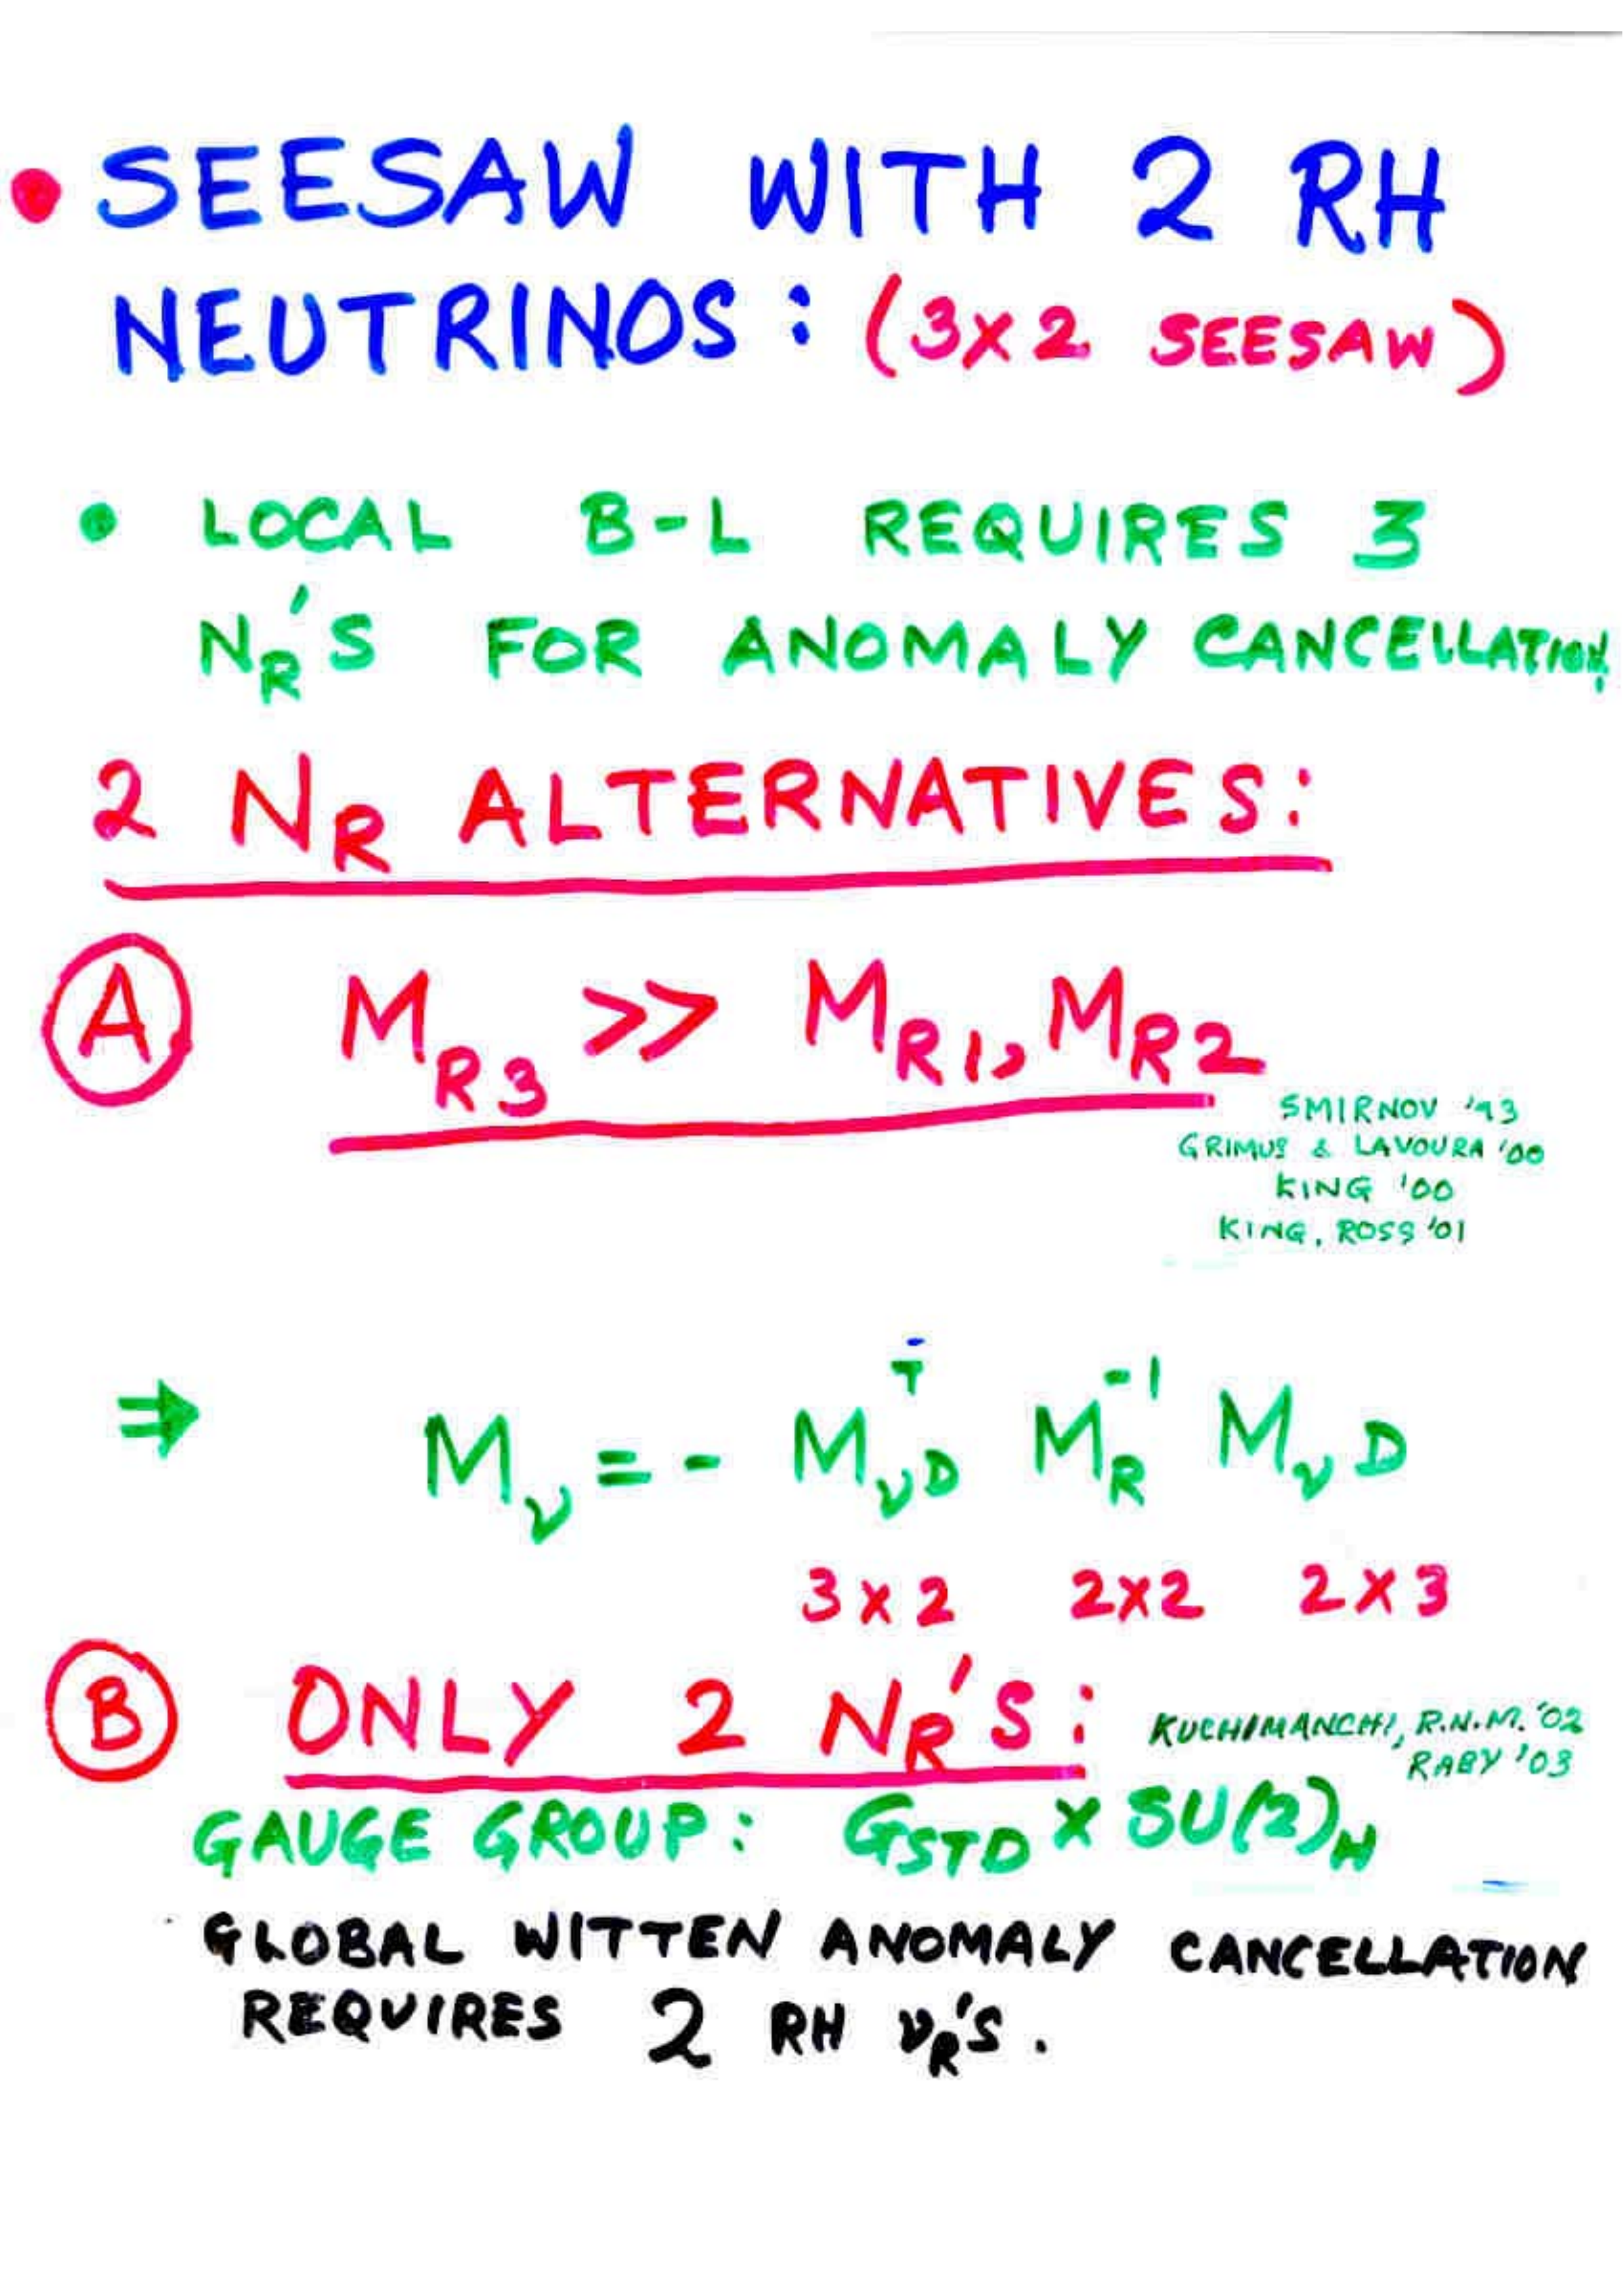 • SEESAW WITH 2 RH
NEUTRINOS: (3X2 SEESAW)
• LOCAL B-L REQUIRES 3
N_R'S FOR ANOMALY CANCELLATION,
2 N_R ALTERNATIVES:
A M_R3 >> M_R1, M_R2
SMIRNOV '93
GRIMUS & LAVOURA '00
KING '00
KING, ROSS '01
⇒ M_ν = - M_νD^T M_R^-1 M_νD
3X2 2X2 2X3
B ONLY 2 N_R'S:
KUCHIMANCHI, R.N.M. '02
RABY '03
GAUGE GROUP: G_STD X SU(2)_H
GLOBAL WITTEN ANOMALY CANCELLATION
REQUIRES 2 RH ν_R'S.